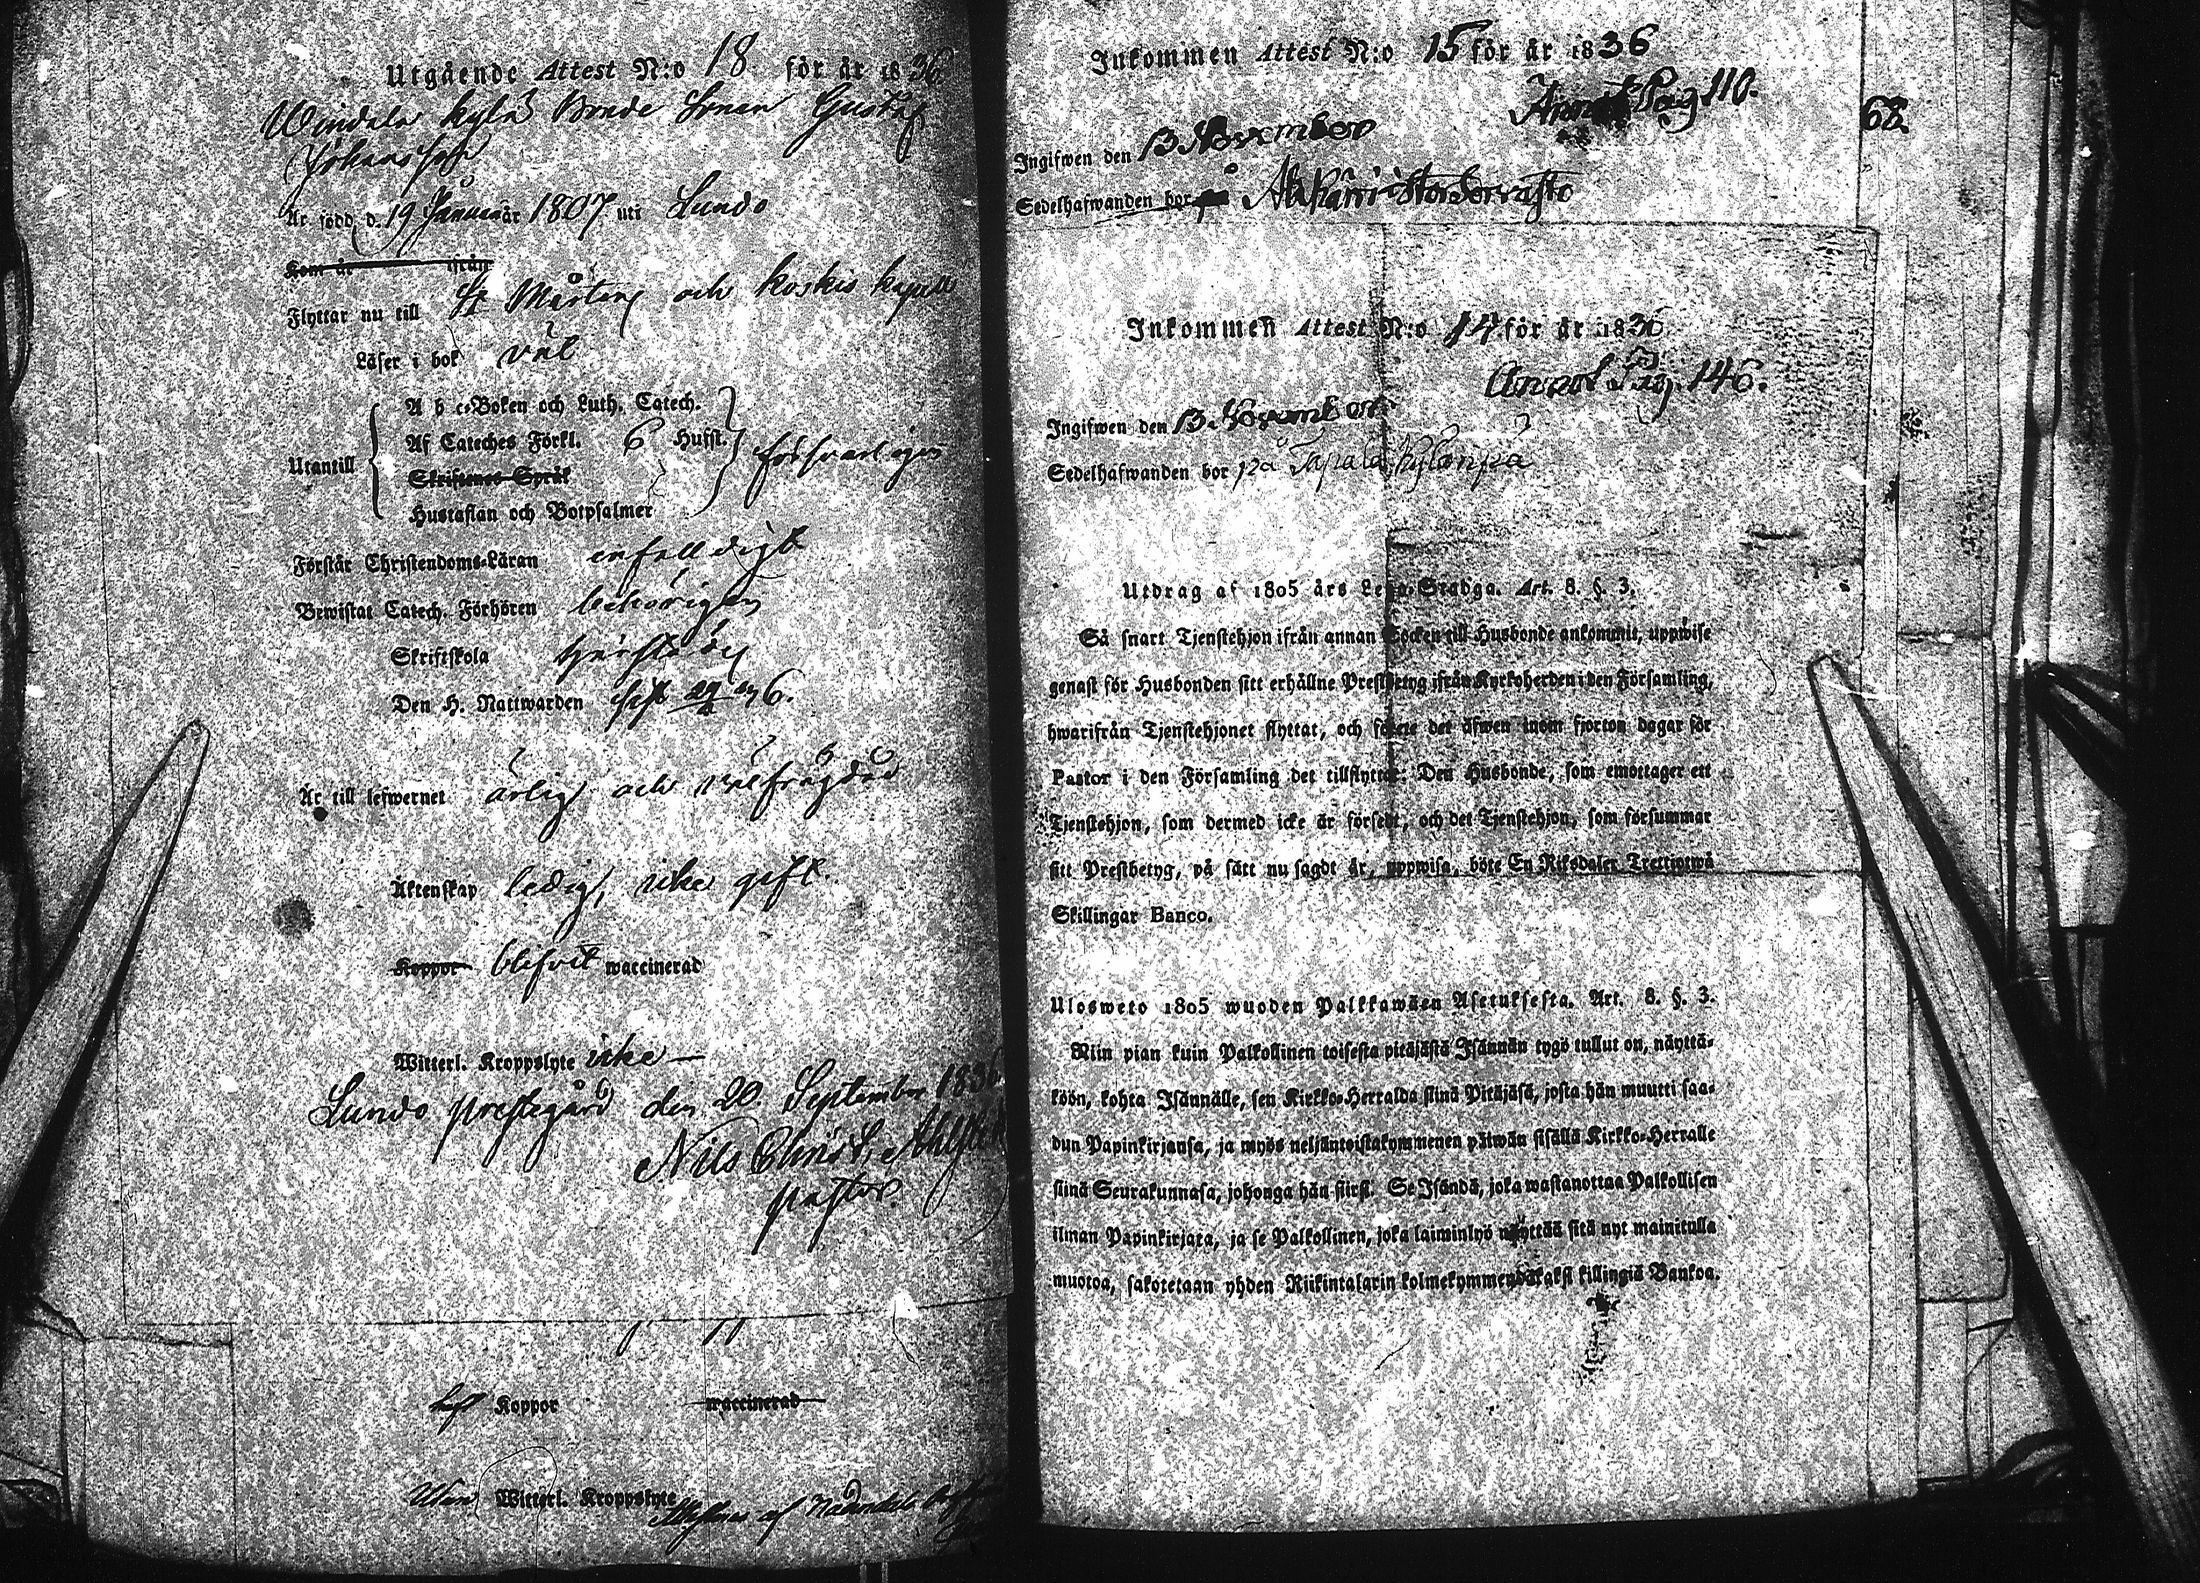 Utgående Attest N:o 18 för år 1836
Windala kylä Bonde Sonen Gustaf
Johansson
Är född d. 19 Januari år 1807 uti Lundo
Kom år ifrån
Flyttar nu till St Mårtens och Koskis kapell
Läser i bok väl
A b c-Boken och Luth. Catech.
Af Cateches Förkl. 6 Hufst.
Utantill försvarligen
Skriftenes Språk
Hustaflan och Botpsalmer
Förstår Christendoms-Läran enfalldigt
Bewistat Catech. Förhören behörigen
Skriftskola
Den H. Nattwarden sist 6.
Är till lefwernet ärlig och välfrägdad
Äktenskap ledig, icke gift.
Koppor blifvit waccinerad
Witterl. Kroppslyte icke
Lundo prestegård den 20. September 1836
Nils Christ.
pastor
haft Koppor waccinerad
Utan Witterl. Kroppslyte
af Nådendals
Inkommen Attest N:o 15 för år 1836
Annot Pag 110.
68.
Ingifwen den 13 November
Sedelhafwanden bor på
Inkommen Attest N:o 14 för år 1836
Annot Pag. 146.
Ingifwen den 13. November
Sedelhafwanden bor på Tapala
Utdrag af 1805 års Lego-Stadga. Art. 8. §. 3.
Så snart Tjenstehjon ifrån annan Socken till Husbonde ankommit, uppwise
genast för Husbonden sitt erhållne Prestbetyg ifrån Kyrkoherden i den Församling,
hwarifrån Tjenstehjonet flyttat, och förete det äfwen inom fjorton dagar för
Pastor i den Församling det tillflyttar: Den Husbonde, som emottager ett
Tjenstehjon, som dermed icke är försedt, och det Tjenstehjon, som försummar
sitt Prestbetyg, på sätt nu sagdt är, uppwisa, böte En Riksdaler Trettiotwå
Skillingar Banco.
Ulosweto 1805 wuoden Palkkawäen Asetuksesta. Art. 8. §. 3.
Niin pian kuin Palkollinen toisesta pitäjästä Isännän tygö tullut on, näyttä-
köön, kohta Isännälle, sen Kirkko-Herralda siinä Pitäjäsä, josta hän muutti saa-
dun Papinkirjansa, ja myös neljäntoistakymmenen päiwän sisällä Kirkko-Herralle
siinä Seurakunnasa, johonga hän siirsi. Se Isändä, joka wastanottaa Palkollisen
ilman Papinkirjata, ja se Palkollinen, joka laiminlyö näyttää sitä nyt mainitulla
muotoa, sakotetaan yhden Riikintalarin kolmekymmendäkaksi killingiä Bankoa.